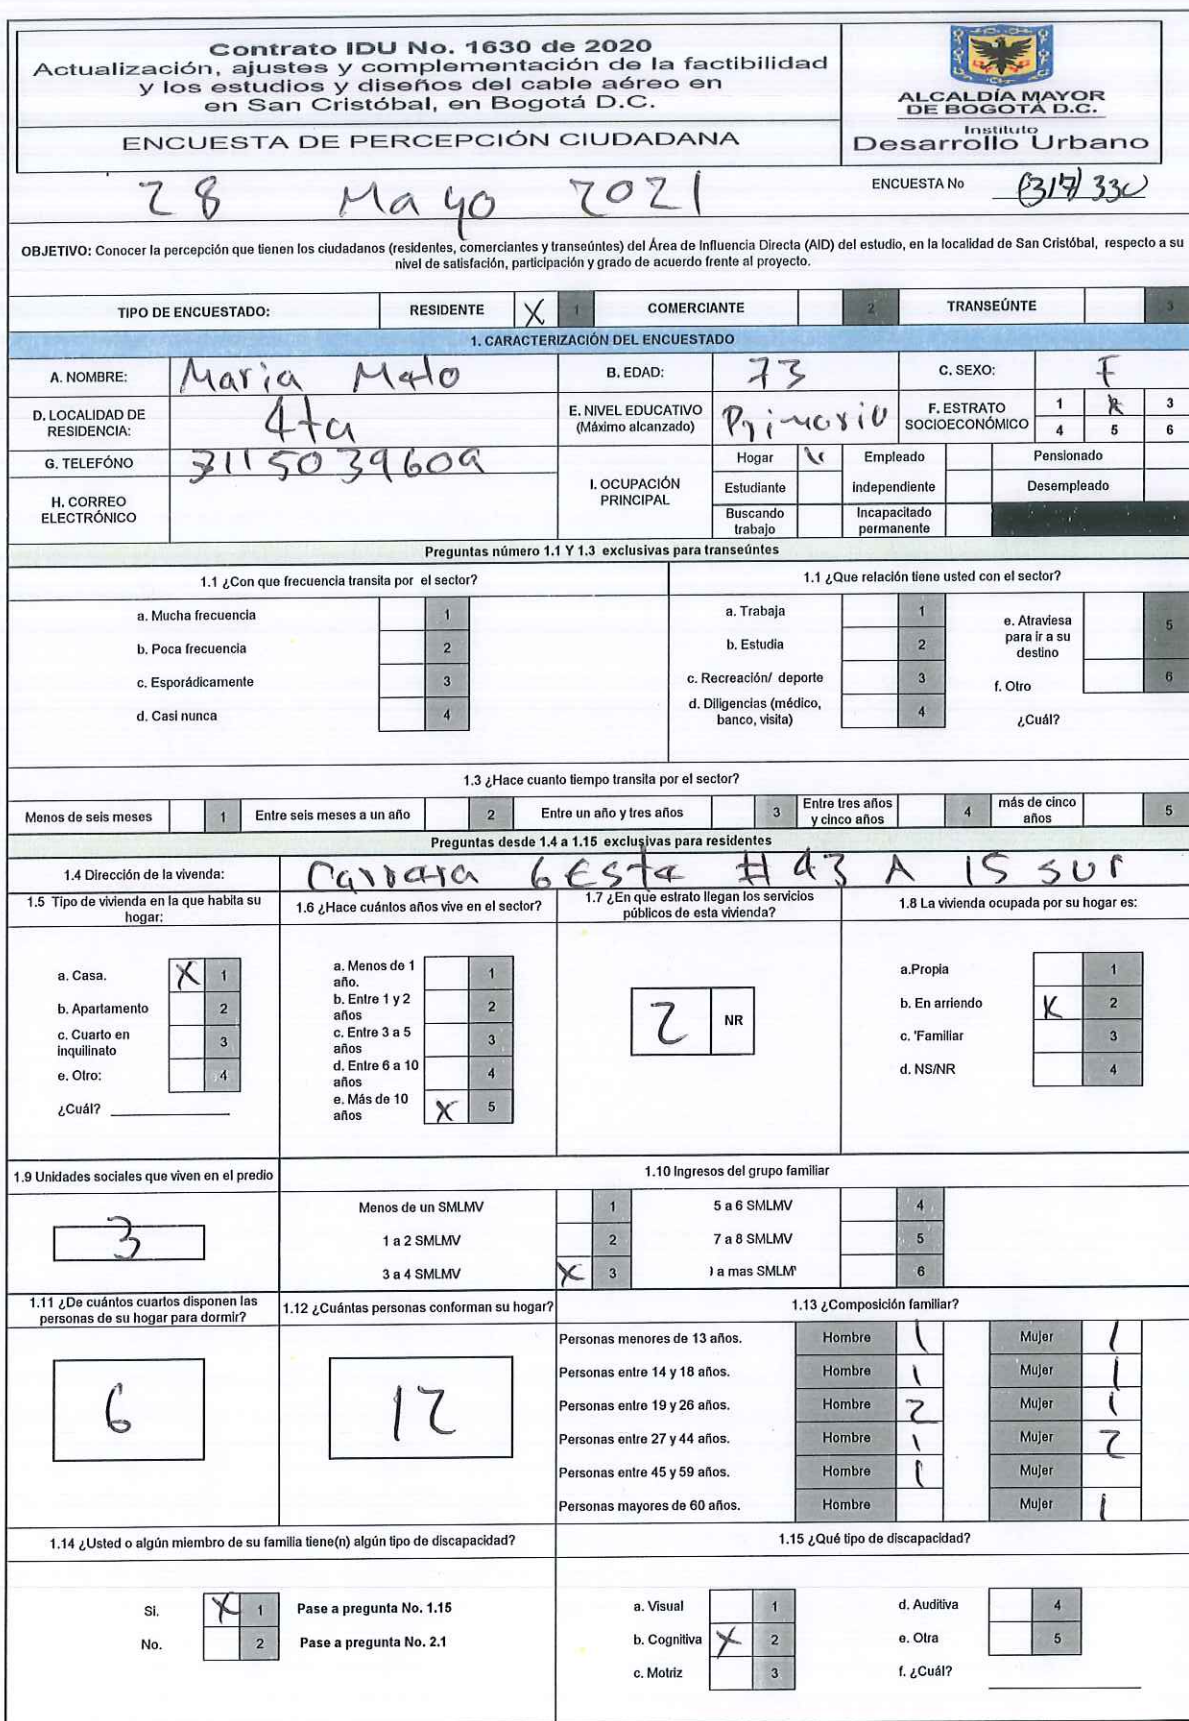 Contrato IDU No. 1630 de 2020
Actualización, ajustes y complementación de la factibilidad
y los estudios y diseños del cable aéreo en
en San Cristóbal, en Bogotá D.C.
ENCUESTA DE PERCEPCIÓN CIUDADANA
ALCALDÍA MAYOR
DE BOGOTÁ D.C.
Instituto
Desarrollo Urbano
28 Mayo 2021
ENCUESTA No (317) 330
OBJETIVO: Conocer la percepción que tienen los ciudadanos (residentes, comerciantes y transeúntes) del Área de Influencia Directa (AID) del estudio, en la localidad de San Cristóbal, respecto a su
nivel de satisfacción, participación y grado de acuerdo frente al proyecto.
TIPO DE ENCUESTADO: RESIDENTE X 1 COMERCIANTE 2 TRANSEÚNTE 3
1. CARACTERIZACIÓN DEL ENCUESTADO
A. NOMBRE: Maria Melo B. EDAD: 73 C. SEXO: F
D. LOCALIDAD DE RESIDENCIA: 4ta E. NIVEL EDUCATIVO (Máximo alcanzado) Primario F. ESTRATO SOCIOECONÓMICO 1 X 3
4 5 6
G. TELEFÓNO 3115039609
H. CORREO ELECTRÓNICO
I. OCUPACIÓN PRINCIPAL
Hogar X Empleado Pensionado
Estudiante independiente Desempleado
Buscando trabajo Incapacitado permanente
Preguntas número 1.1 Y 1.3 exclusivas para transeúntes
1.1 ¿Con que frecuencia transita por el sector?
a. Mucha frecuencia 1
b. Poca frecuencia 2
c. Esporádicamente 3
d. Casi nunca 4
1.1 ¿Que relación tiene usted con el sector?
a. Trabaja 1
b. Estudia 2
c. Recreación/ deporte 3
d. Diligencias (médico, banco, visita) 4
e. Atraviesa para ir a su destino 5
f. Otro 6
¿Cuál?
1.3 ¿Hace cuanto tiempo transita por el sector?
Menos de seis meses 1 Entre seis meses a un año 2 Entre un año y tres años 3 Entre tres años y cinco años 4 más de cinco años 5
Preguntas desde 1.4 a 1.15 exclusivas para residentes
1.4 Dirección de la vivenda: Carrera 6 Este # 43 A 15 sur
1.5 Tipo de vivienda en la que habita su hogar:
a. Casa. X 1
b. Apartamento 2
c. Cuarto en inquilinato 3
e. Otro: 4
¿Cuál?
1.6 ¿Hace cuántos años vive en el sector?
a. Menos de 1 año. 1
b. Entre 1 y 2 años 2
c. Entre 3 a 5 años 3
d. Entre 6 a 10 años 4
e. Más de 10 años X 5
1.7 ¿En qué estrato llegan los servicios públicos de esta vivienda?
2 NR
1.8 La vivienda ocupada por su hogar es:
a.Propia 1
b. En arriendo X 2
c. 'Familiar 3
d. NS/NR 4
1.9 Unidades sociales que viven en el predio
3
1.10 Ingresos del grupo familiar
Menos de un SMLMV 1 5 a 6 SMLMV 4
1 a 2 SMLMV 2 7 a 8 SMLMV 5
3 a 4 SMLMV X 3 a mas SMLM 6
1.11 ¿De cuántos cuartos disponen las personas de su hogar para dormir?
6
1.12 ¿Cuántas personas conforman su hogar?
12
1.13 ¿Composición familiar?
Personas menores de 13 años. Hombre 1 Mujer 1
Personas entre 14 y 18 años. Hombre 1 Mujer 1
Personas entre 19 y 26 años. Hombre 2 Mujer 1
Personas entre 27 y 44 años. Hombre 1 Mujer 2
Personas entre 45 y 59 años. Hombre 1 Mujer
Personas mayores de 60 años. Hombre Mujer 1
1.14 ¿Usted o algún miembro de su familia tiene(n) algún tipo de discapacidad?
Si. X 1 Pase a pregunta No. 1.15
No. 2 Pase a pregunta No. 2.1
1.15 ¿Qué tipo de discapacidad?
a. Visual 1 d. Auditiva 4
b. Cognitiva X 2 e. Otra 5
c. Motriz 3 f. ¿Cuál?